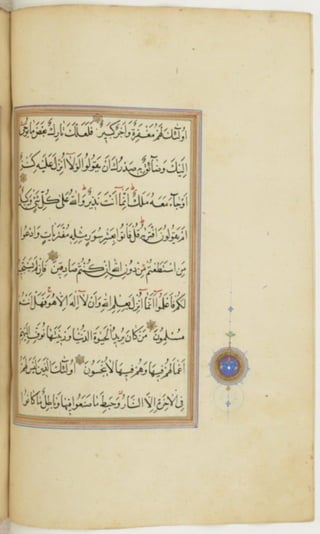 اُولٰٓئِكَ لَهُمْ مَغْفِرَةٌ وَاَجْرٌ كَبِيرٌ فَلَعَلَّكَ تَارِكٌ بَعْضَ مَا يُوحٰى
اِلَيْكَ وَضَآئِقٌ بِهِ صَدْرُكَ اَنْ يَقُولُوا لَوْلَا اُنْزِلَ عَلَيْهِ كَنْزٌ
اَوْ جَآءَ مَعَهُ مَلَكٌ اِنَّمَا اَنْتَ نَذِيرٌ وَاللهُ عَلٰى كُلِّ شَيْءٍ وَكِيلٌ
اَمْ يَقُولُونَ افْتَرٰيهُ قُلْ فَاْتُوا بِعَشْرِ سُوَرٍ مِثْلِهِ مُفْتَرَيَاتٍ وَادْعُوا
مَنِ اسْتَطَعْتُمْ مِنْ دُونِ اللهِ اِنْ كُنْتُمْ صَادِقِينَ فَاِنْ لَمْ يَسْتَجِيبُوا
لَكُمْ فَاعْلَمُوا اَنَّمَا اُنْزِلَ بِعِلْمِ اللهِ وَاَنْ لَا اِلٰهَ اِلَّا هُوَ فَهَلْ اَنْتُمْ
مُسْلِمُونَ مَنْ كَانَ يُرِيدُ الْحَيٰوةَ الدُّنْيَا وَزِينَتَهَا نُوَفِّ اِلَيْهِمْ
اَعْمَالَهُمْ فِيهَا وَهُمْ فِيهَا لَا يُبْخَسُونَ اُولٰٓئِكَ الَّذِينَ لَيْسَ لَهُمْ
فِي الْاٰخِرَةِ اِلَّا النَّارُ وَحَبِطَ مَا صَنَعُوا فِيهَا وَبَاطِلٌ مَا كَانُوا